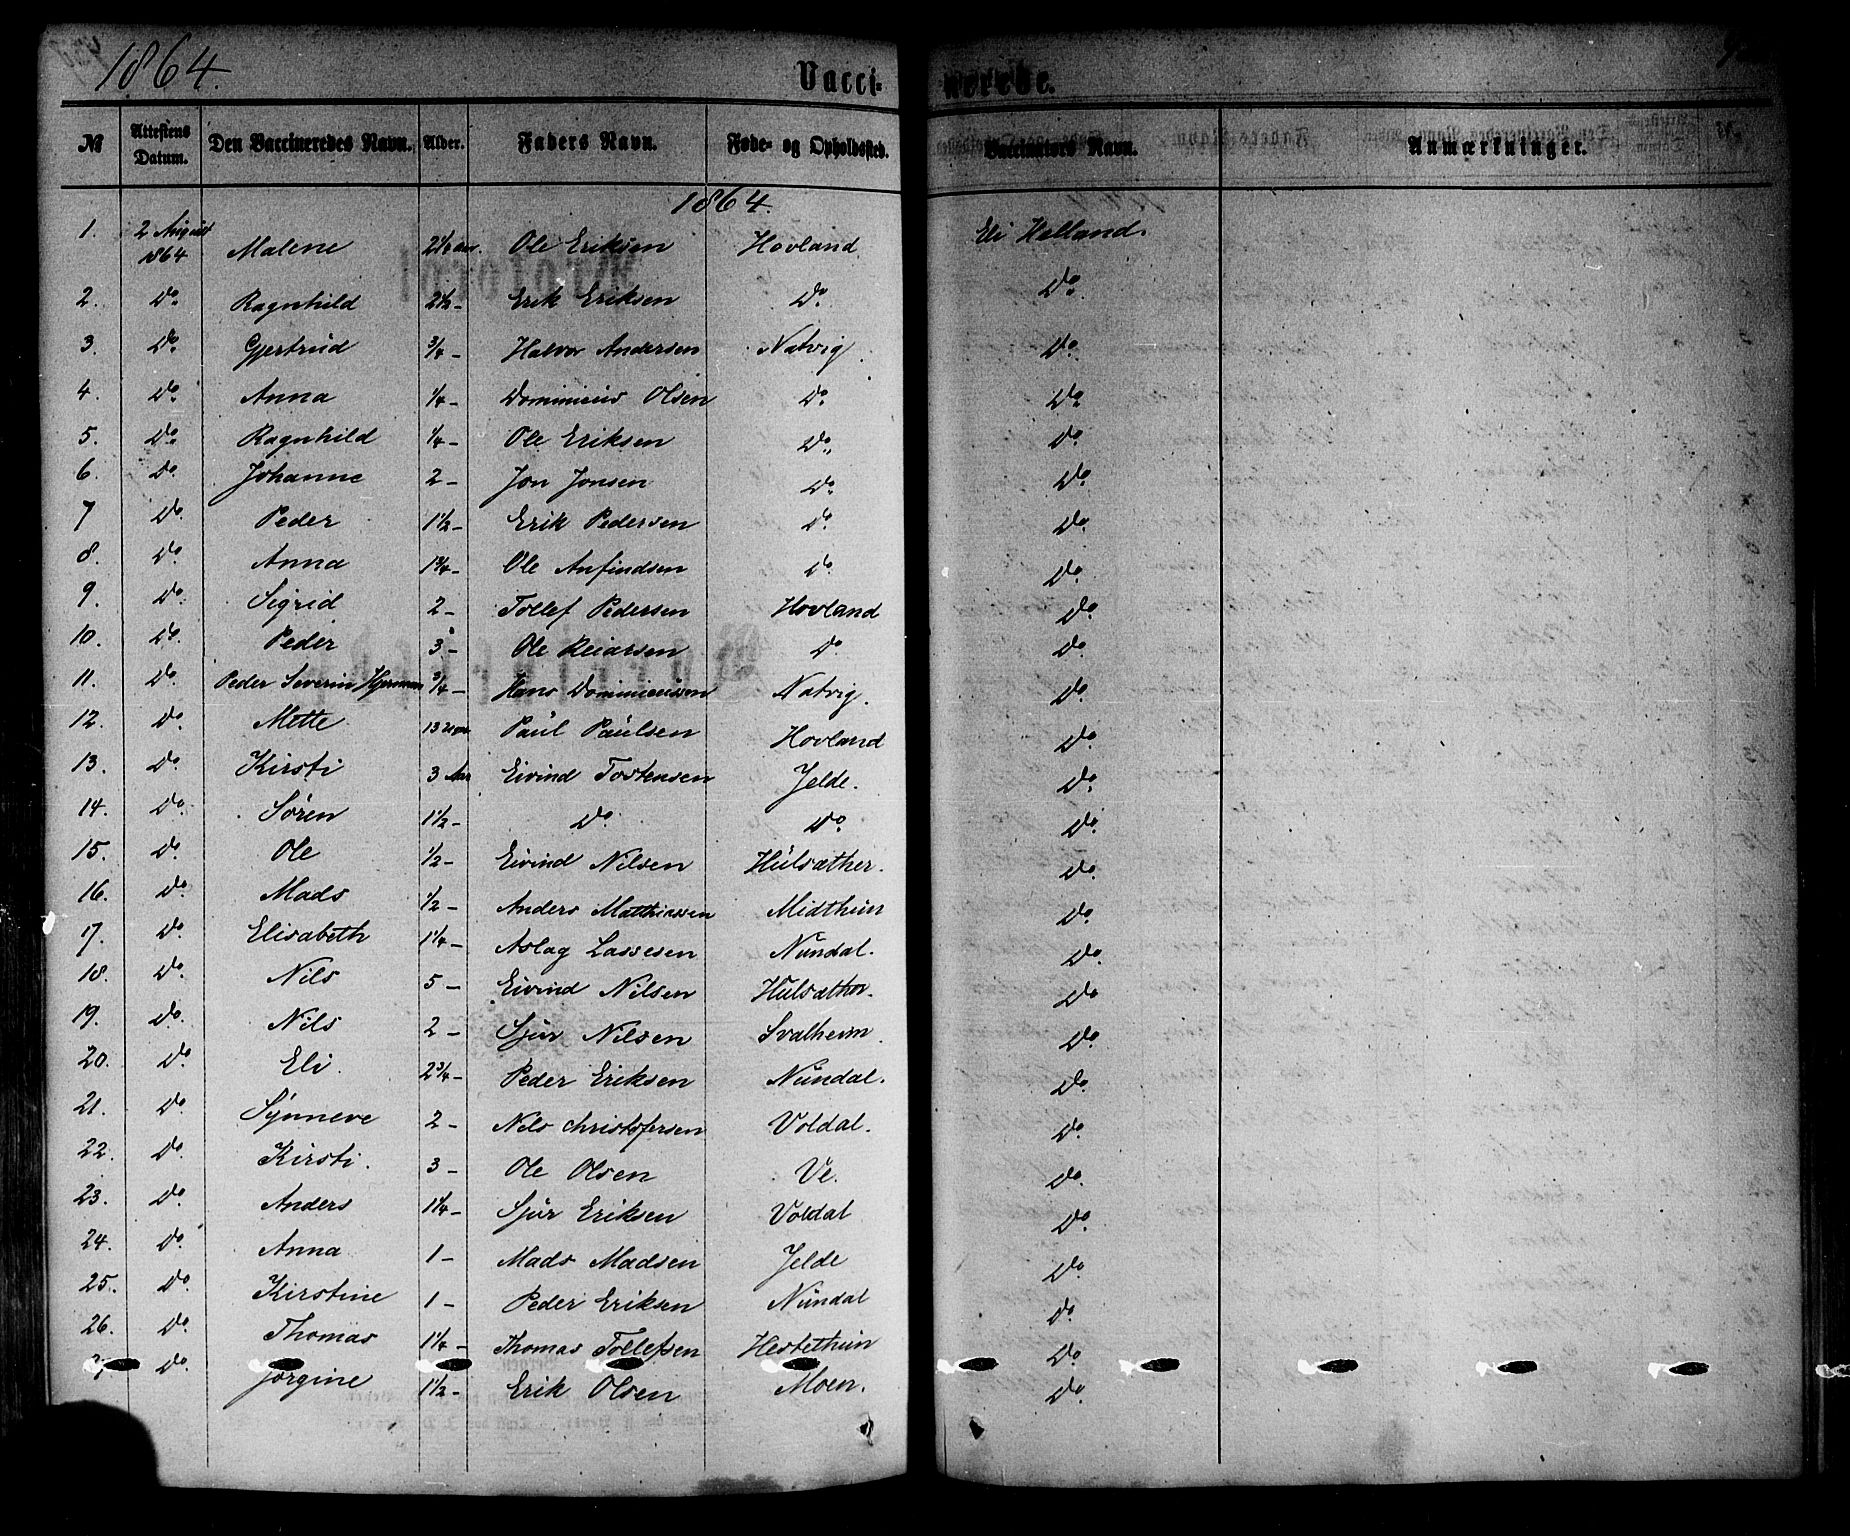 1864.
Vacci- nerede.
№ Attestens Datum. Den Vaccineredes Navn. Alder. Faders Navn. Føde- og Opholdssted. Vaccinators Navn. Anmærkninger.
1864.
1. 2 August 1864 Malene 2½ Aar. Ole Eriksen Hovland Eli Helland.
2. Do. Ragnhild 2½ - Erik Eriksen Do. Do.
3. Do. Gjertrud ¾ - Halvor Andersen Natvig. Do.
4. Do. Anna ¼ - Dominicus Olsen Do. Do.
5. Do. Ragnhild ¼ - Ole Eriksen Do. Do.
6. Do. Johanne 2 - Jon Jonsen Do. Do.
7 Do. Peder 1½ - Erik Pedersen Do. Do.
8. Do. Anna 1¾ - Ole Anfindsen Do. Do.
9. Do. Sigrid 2 - Tollef Pedersen Hovland Do.
10. Do. Peder 3 - Ole Reiarsen Do. Do.
11. Do. Peder Severin Hjerman ¾ - Hans Dominicussen Natvig. Do.
12. Do. Mette 13 Uger Paul Paulsen Hovland Do.
13. Do. Kirsti 3 Aar Eivind Tostensen Jelde. Do.
14. Do. Sören 1½ - Do. Do. Do.
15. Do. Ole ½ - Eivind Nilsen Hulsæther. Do.
16. Do. Mads ½ - Anders Matthiassen Midthun Do.
17. Do. Elisabeth 1¼ - Aslag Lassesen Nundal. Do.
18. Do. Nils 5 - Eivind Nilsen Hulsæther. Do.
19. Do. Nils 2 - Sjur Nilsen Svalheim Do.
20. Do. Eli. 2¾ - Peder Eriksen Nundal. Do.
21. Do. Synneve 2 - Nils Christofersen Voldal. Do.
22. Do. Kirsti. 3 - Ole Olsen Ve. Do.
23. Do. Anders 1¼ - Sjur Eriksen Voldal Do.
24. Do. Anna 1 - Mads Madsen Jelde Do.
25. Do. Kirstine 1 - Peder Eriksen Nundal Do.
26. Do. Thomas 1¼ - Thomas Tollefsen Hestethun Do.
Do. Jörgine 1½ - Erik Olsen Moen. Do.